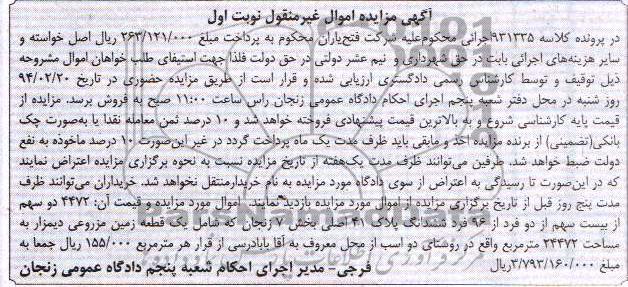 آگهی مزایده اموال غیرمنقول نوبت اول
در پرونده کلاسه ۹۳۱۳۳۵اجرائی محکوم‌علیه شرکت فتح‌یاران محکوم به پرداخت مبلغ ۳۶۳/۱۲۱/۰۰۰ ریال اصل خواسته و
سایر هزینه‌های اجرائی بابت در حق شهرداری و نیم عشر دولتی در حق دولت فلذا جهت استیفای طلب خواهان اموال مشروحه
ذیل توقیف و توسط کارشناس رسمی دادگستری ارزیابی شده و قرار است از طریق مزایده حضوری در تاریخ ۹۴/۰۲/۲۰
روز شنبه در محل دفتر شعبه پنجم اجرای احکام دادگاه عمومی زنجان راس ساعت ۱۱:۰۰ صبح به فروش برسد. مزایده از
قیمت پایه کارشناسی شروع و به بالاترین قیمت پیشنهادی فروخته خواهد شد و ۱۰ درصد ثمن معامله نقدا یا به‌صورت چک
بانکی(تضمینی) از برنده مزایده اخذ و مابقی باید ظرف مدت یک ماه پرداخت گردد در غیر این‌صورت ۱۰ درصد ماخوذه به نفع
دولت ضبط خواهد شد. طرفین می‌توانند ظرف مدت یک‌هفته از تاریخ مزایده نسبت به نحوه برگزاری مزایده اعتراض نمایند
که در این‌صورت تا رسیدگی به اعتراض از سوی دادگاه مورد مزایده به نام خریدارمنتقل نخواهد شد. خریداران می‌توانند ظرف
مدت پنج روز قبل از تاریخ برگزاری مزایده از اموال مورد مزایده بازدید نمایند. اموال مورد مزایده و قیمت آن: ۴۴۷۲ دو سهم
از بیست سهم از دو فرد از ۹۶ فرد ششدانگ پلاک ۴۱ اصلی بخش ۷ زنجان که شامل یک قطعه زمین مزروعی دیمزار به
مساحت ۲۴۴۷۲ مترمربع واقع در روستای دو اسب از محل معروف به آقا بابادرسی از قرار هر مترمربع ۱۵۵/۰۰۰ ریال جمعا به
مبلغ ۳/۷۹۳/۱۶۰/۰۰۰ریال
فرجی- مدیر اجرای احکام شعبه پنجم دادگاه عمومی زنجان